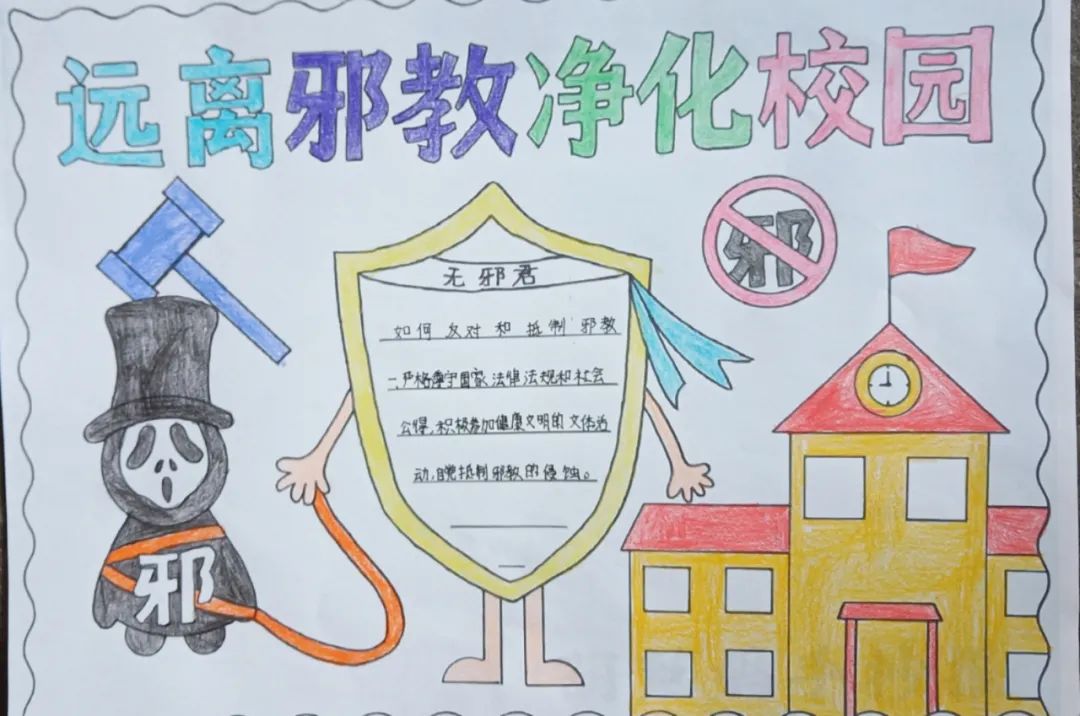 远离邪教净化校园
邪
无邪君
如何反对和抵制邪教
二、严格遵守国家法律法规和社会
公德,积极参加健康文明的文体活
动,自觉抵制邪教的侵蚀。
邪